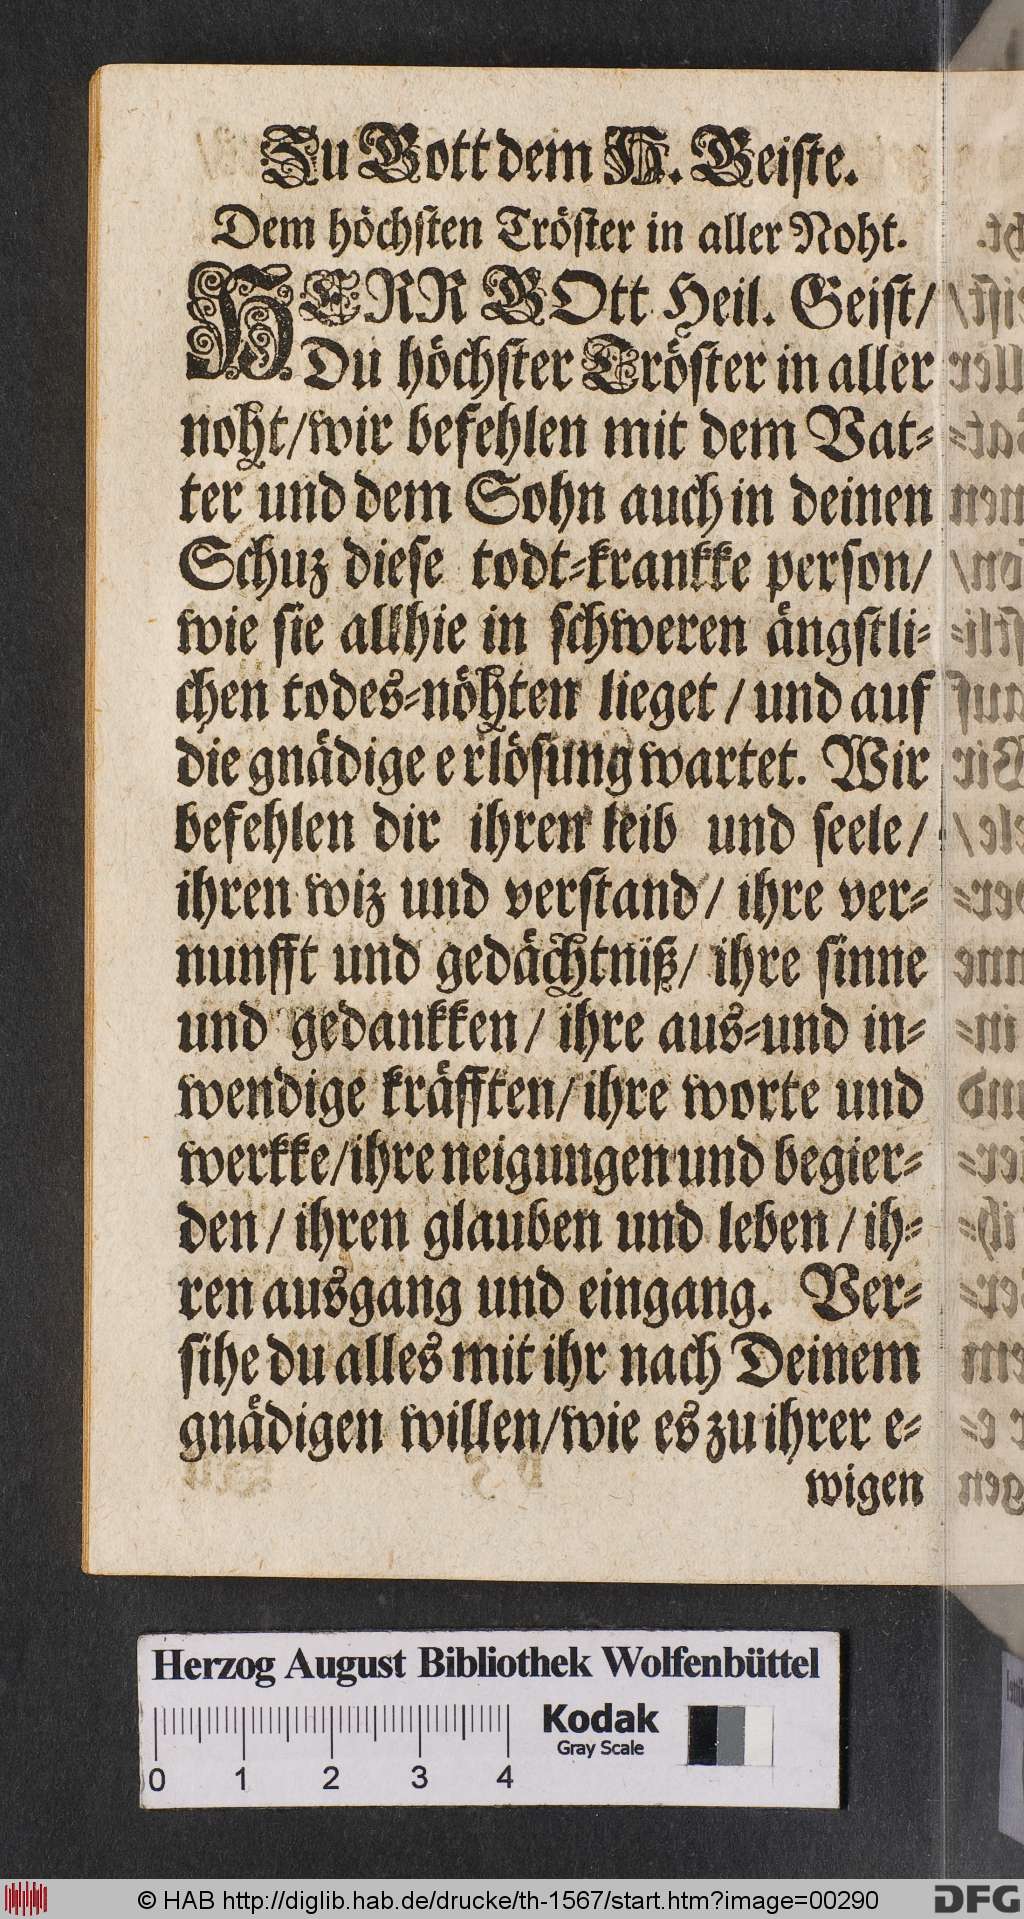 Zu Gott dem H. Geiste.
Dem höchsten Tröster in aller Noht.
HERR GOtt Heil. Geist/
Du höchster Tröster in aller
noht/wir befehlen mit dem Vat-
ter und dem Sohn auch in deinen
Schuz diese todt-krankke person/
wie sie allhie in schweren ängstli-
chen todes-nöhten lieget / und auf
die gnädige erlösung wartet. Wir
befehlen dir ihren leib und seele/
ihren wiz und verstand/ ihre ver-
nunfft und gedächtniß/ ihre sinne
und gedankken/ ihre aus-und in-
wendige kräfften/ihre worte und
werkke/ihre neigungen und begier-
den/ ihren glauben und leben/ ih-
ren ausgang und eingang. Ver-
sihe du alles mit ihr nach Deinem
gnädigen willen/wie es zu ihrer e-
wigen
Herzog August Bibliothek Wolfenbüttel
Kodak
Gray Scale
0 1 2 3 4
© HAB http://diglib.hab.de/drucke/th-1567/start.htm?image=00290
DFG